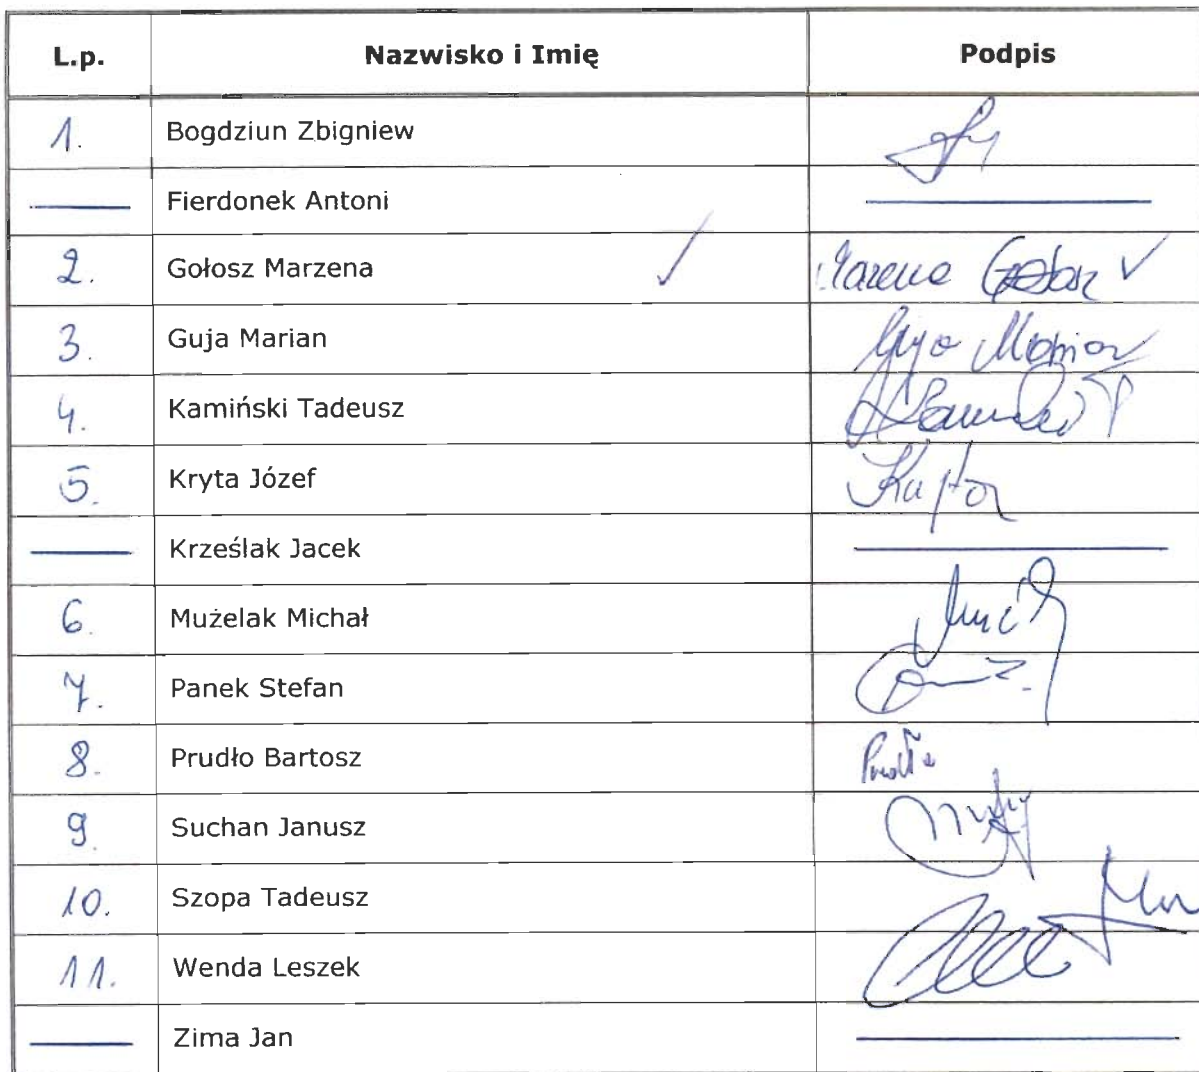 L.p. Nazwisko i Imię Podpis
1. Bogdziun Zbigniew
Fierdonek Antoni
2. Gołosz Marzena ✓ Marzena Gołosz ✓
3. Guja Marian Guja Marian
4. Kamiński Tadeusz Kamiński T
5. Kryta Józef
Krześlak Jacek
6. Mużelak Michał
7. Panek Stefan
8. Prudło Bartosz Prudło
9. Suchan Janusz
10. Szopa Tadeusz
11. Wenda Leszek
Zima Jan